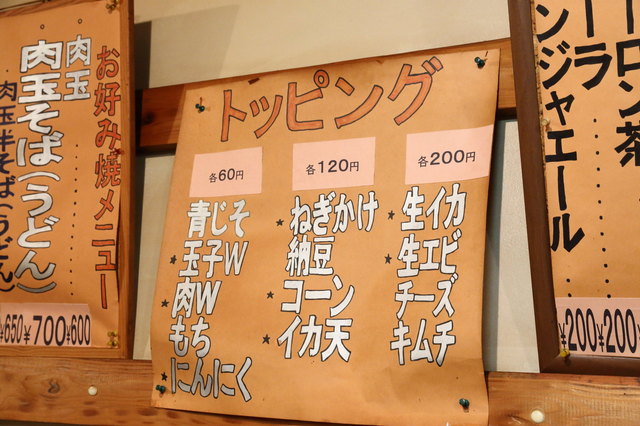 お好み焼メニュー
肉玉
肉玉そば(うどん)
肉玉半そば(うどん)
¥650
¥700
¥600
トッピング
各60円
青じそ
玉子W
肉W
もち
にんにく
各120円
ねぎかけ
納豆
コーン
イカ天
各200円
生イカ
生エビ
チーズ
キムチ
ーロン茶
ーラ
ンジャエール
¥200
¥200